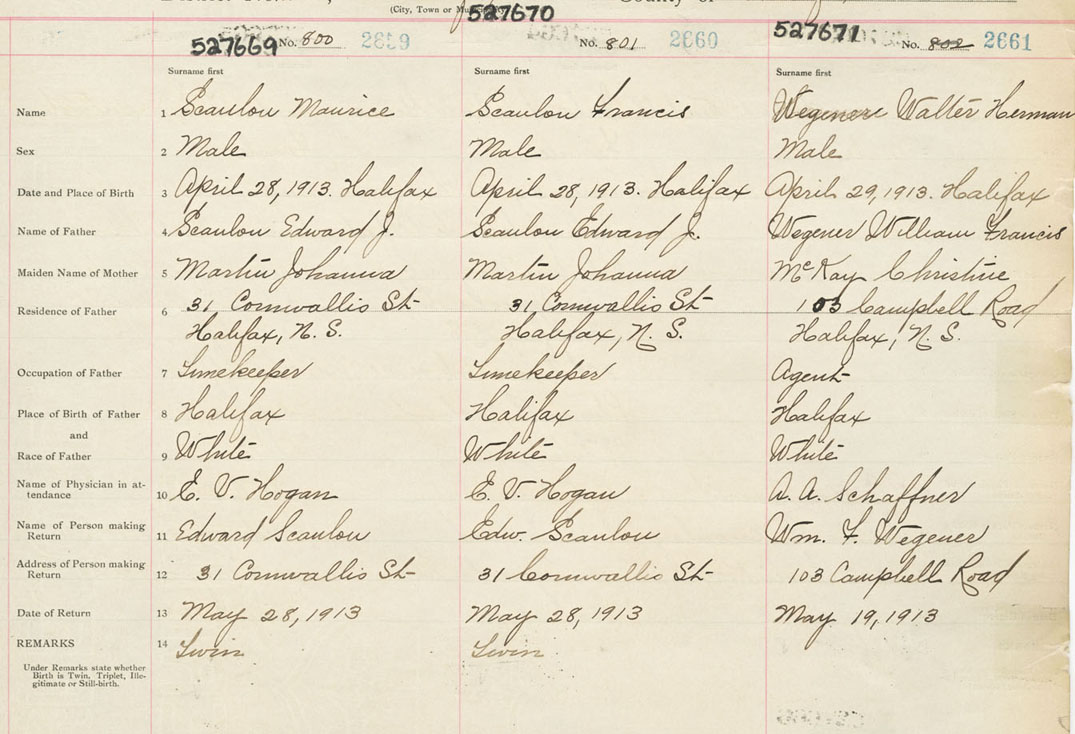 (City, Town or Mu
527669 No. 800 2659
527670 No. 801 2660
527671 No. 802 2661
Surname first Surname first Surname first
Name 1 Scanlon Maurice Scanlon Francis Wegener Walter Herman
Sex 2 Male Male Male
Date and Place of Birth 3 April 28, 1913. Halifax April 28, 1913. Halifax April 29, 1913. Halifax
Name of Father 4 Scanlon Edward J. Scanlon Edward J. Wegener William Francis
Maiden Name of Mother 5 Martin Johanna Martin Johanna McKay Christine
Residence of Father 6 31 Cornwallis St 31 Cornwallis St 103 Campbell Road
Halifax, N. S. Halifax, N. S. Halifax, N. S.
Occupation of Father 7 Timekeeper Timekeeper Agent
Place of Birth of Father 8 Halifax Halifax Halifax
and
Race of Father 9 White White White
Name of Physician in at-
tendance 10 E. V. Hogan E. V. Hogan A. A. Schaffner
Name of Person making
Return 11 Edward Scanlon Edw. Scanlon Wm. F. Wegener
Address of Person making
Return 12 31 Cornwallis St 31 Cornwallis St 103 Campbell Road
Date of Return 13 May 28, 1913 May 28, 1913 May 19, 1913
REMARKS 14 Twin Twin
Under Remarks state whether
Birth is Twin, Triplet, Ille-
gitimate or Still-birth.